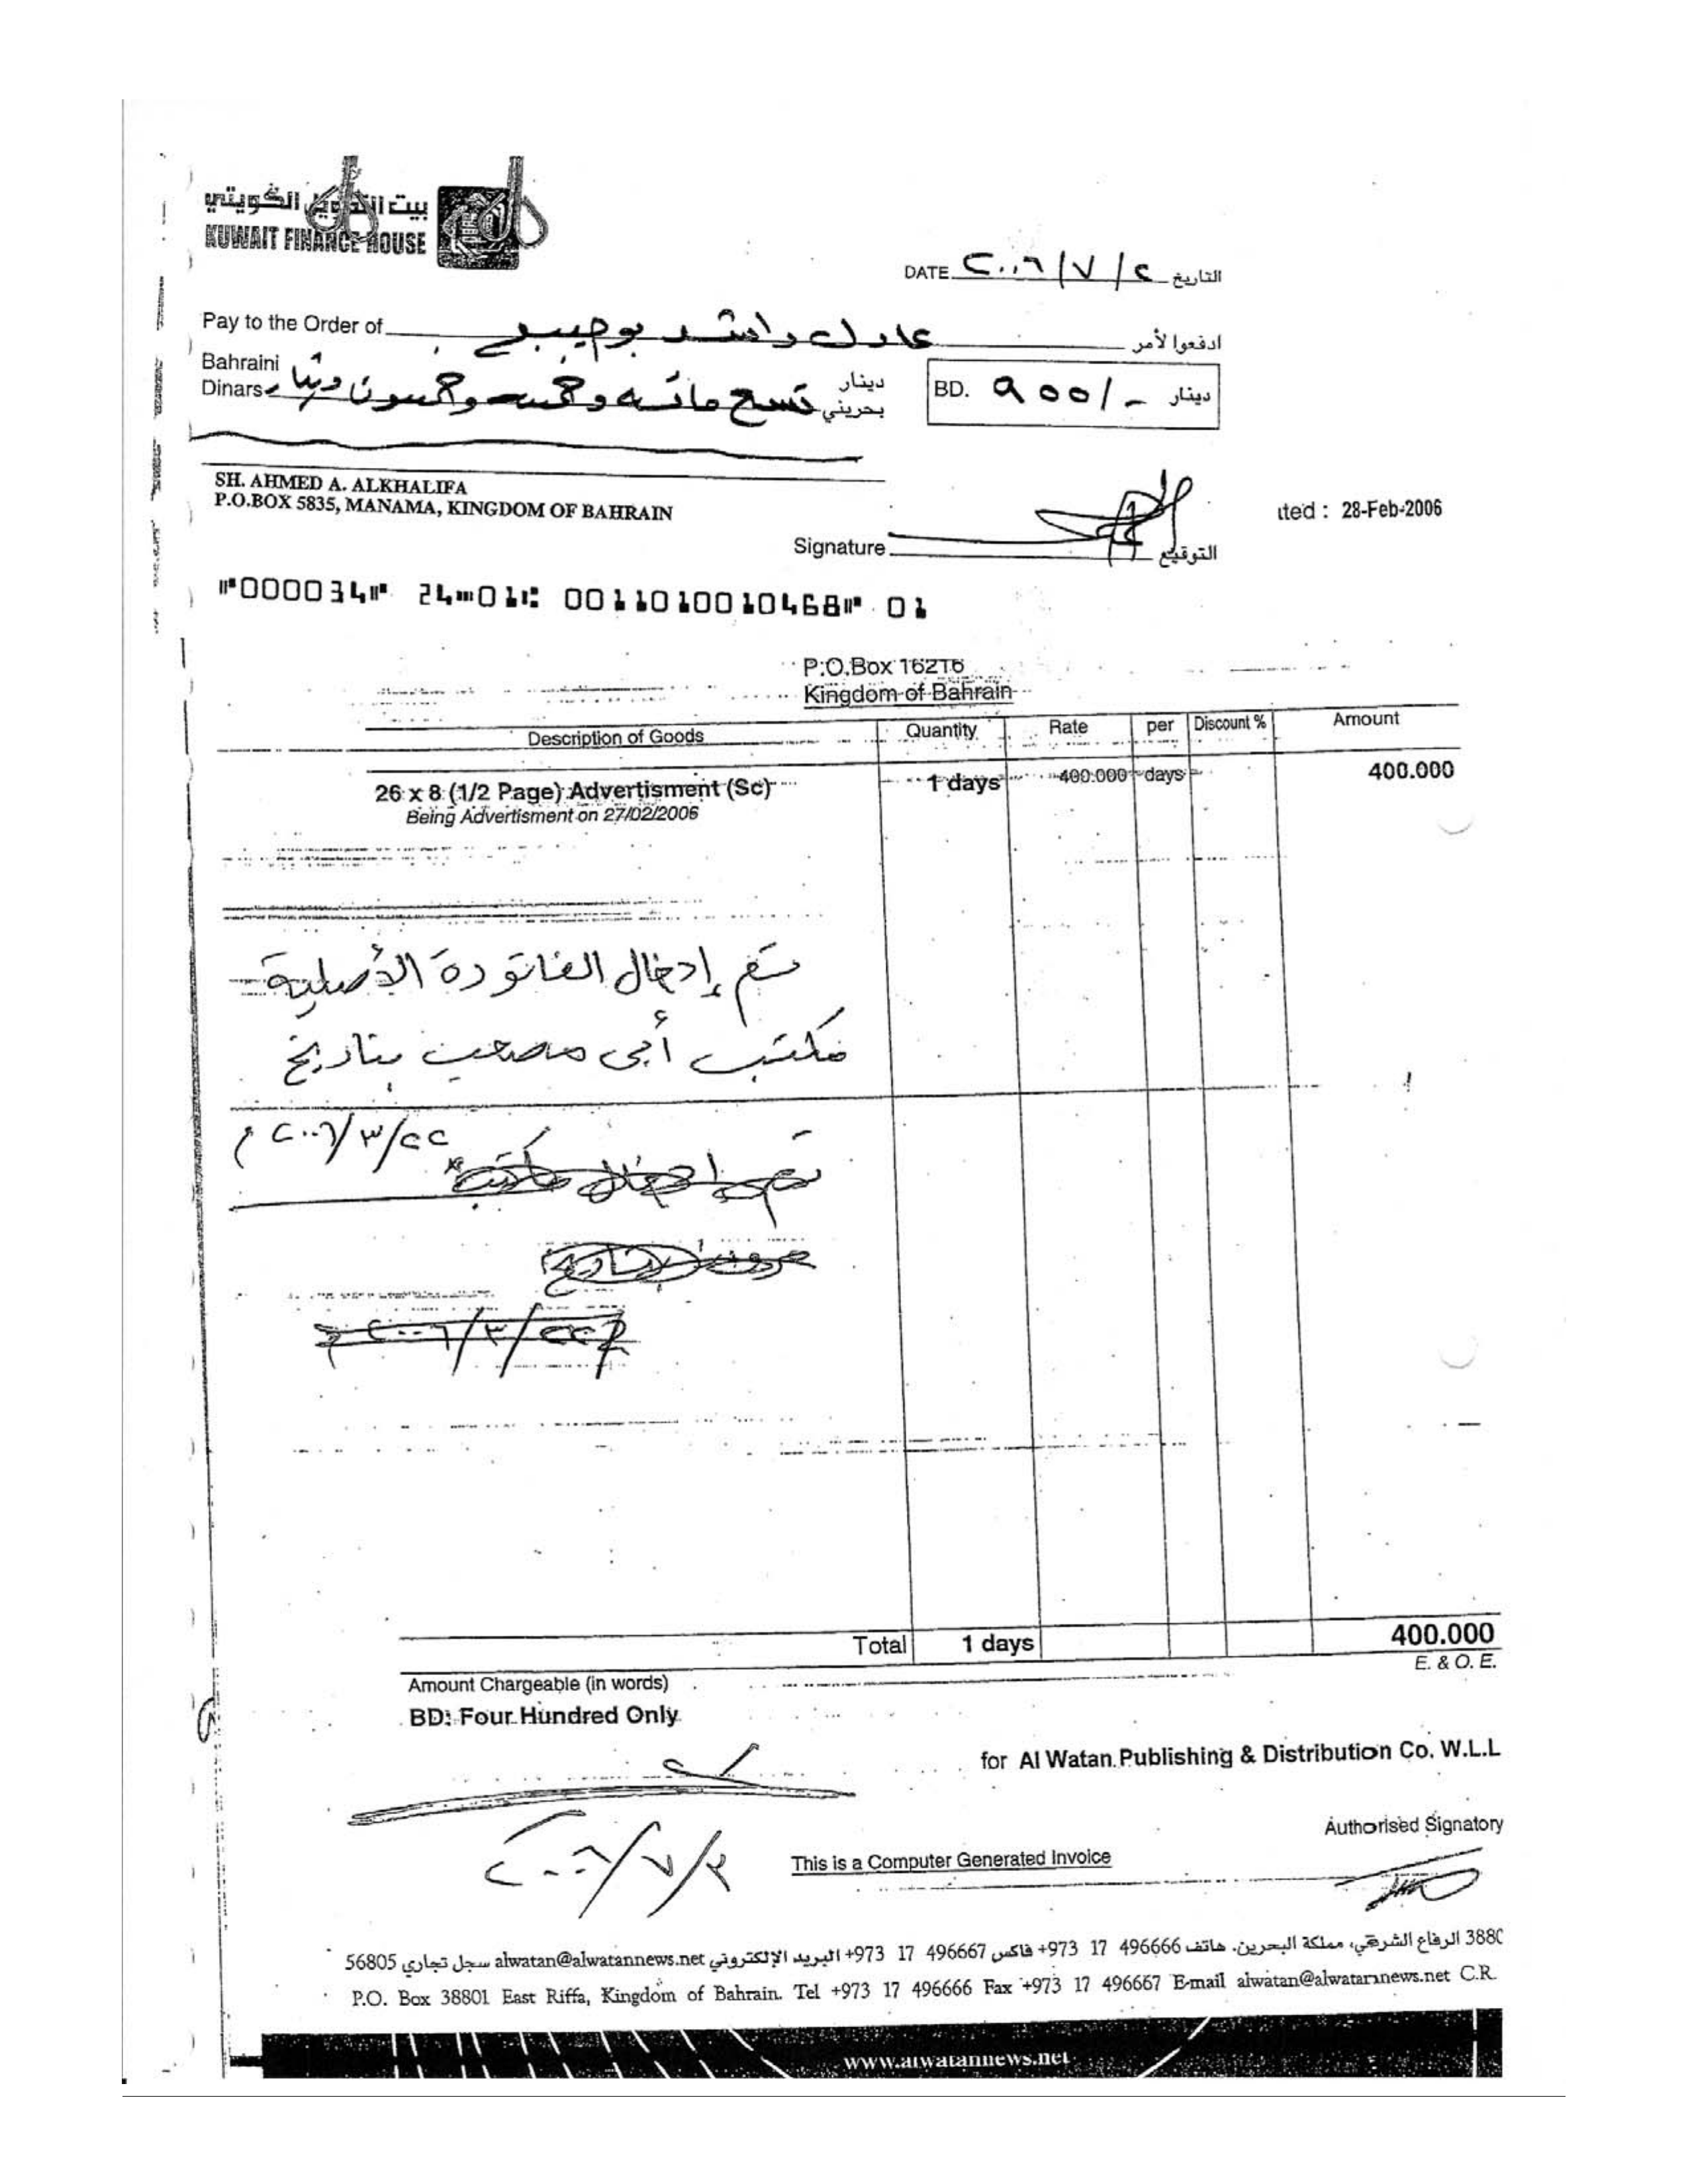 بيت التمويل الكويتي
KUWAIT FINANCE HOUSE
DATE ٢٠٠٦/٧/٢ التاريخ
Pay to the Order of عادل راشد بوصيبع ادفعوا لأمر
Bahraini Dinars تسع مائه وخمسه وخمسون دينار دينار بحريني
BD. ٩٥٥/- دينار
SH. AHMED A. ALKHALIFA
P.O.BOX 5835, MANAMA, KINGDOM OF BAHRAIN
uted : 28-Feb-2006
Signature التوقيع
⑈000034⑈ 24⑉01⑆ 001101001046 8⑈ 01
P.O.Box 16216
Kingdom of Bahrain
Description of Goods Quantity Rate per Discount % Amount
26 x 8 (1/2 Page) Advertisment (Sc) 1 days 400.000 days 400.000
Being Advertisment on 27/02/2006
تم إدخال الفاتورة الأصلية
مكتب أبي مصعب بتاريخ
٢٢/٣/٢٠٠٦ م
Total 1 days 400.000
E. & O. E.
Amount Chargeable (in words)
BD: Four Hundred Only
for Al Watan Publishing & Distribution Co. W.L.L
Authorised Signatory
٢٠٠٦/٧/٢
This is a Computer Generated Invoice
3880 الرفاع الشرقي، مملكة البحرين. هاتف 496666 17 973+ فاكس 496667 17 973+ البريد الإلكتروني alwatan@alwatannews.net سجل تجاري 56805
P.O. Box 38801 East Riffa, Kingdom of Bahrain. Tel +973 17 496666 Fax +973 17 496667 E-mail alwatan@alwatannews.net C.R.
www.alwatannews.net